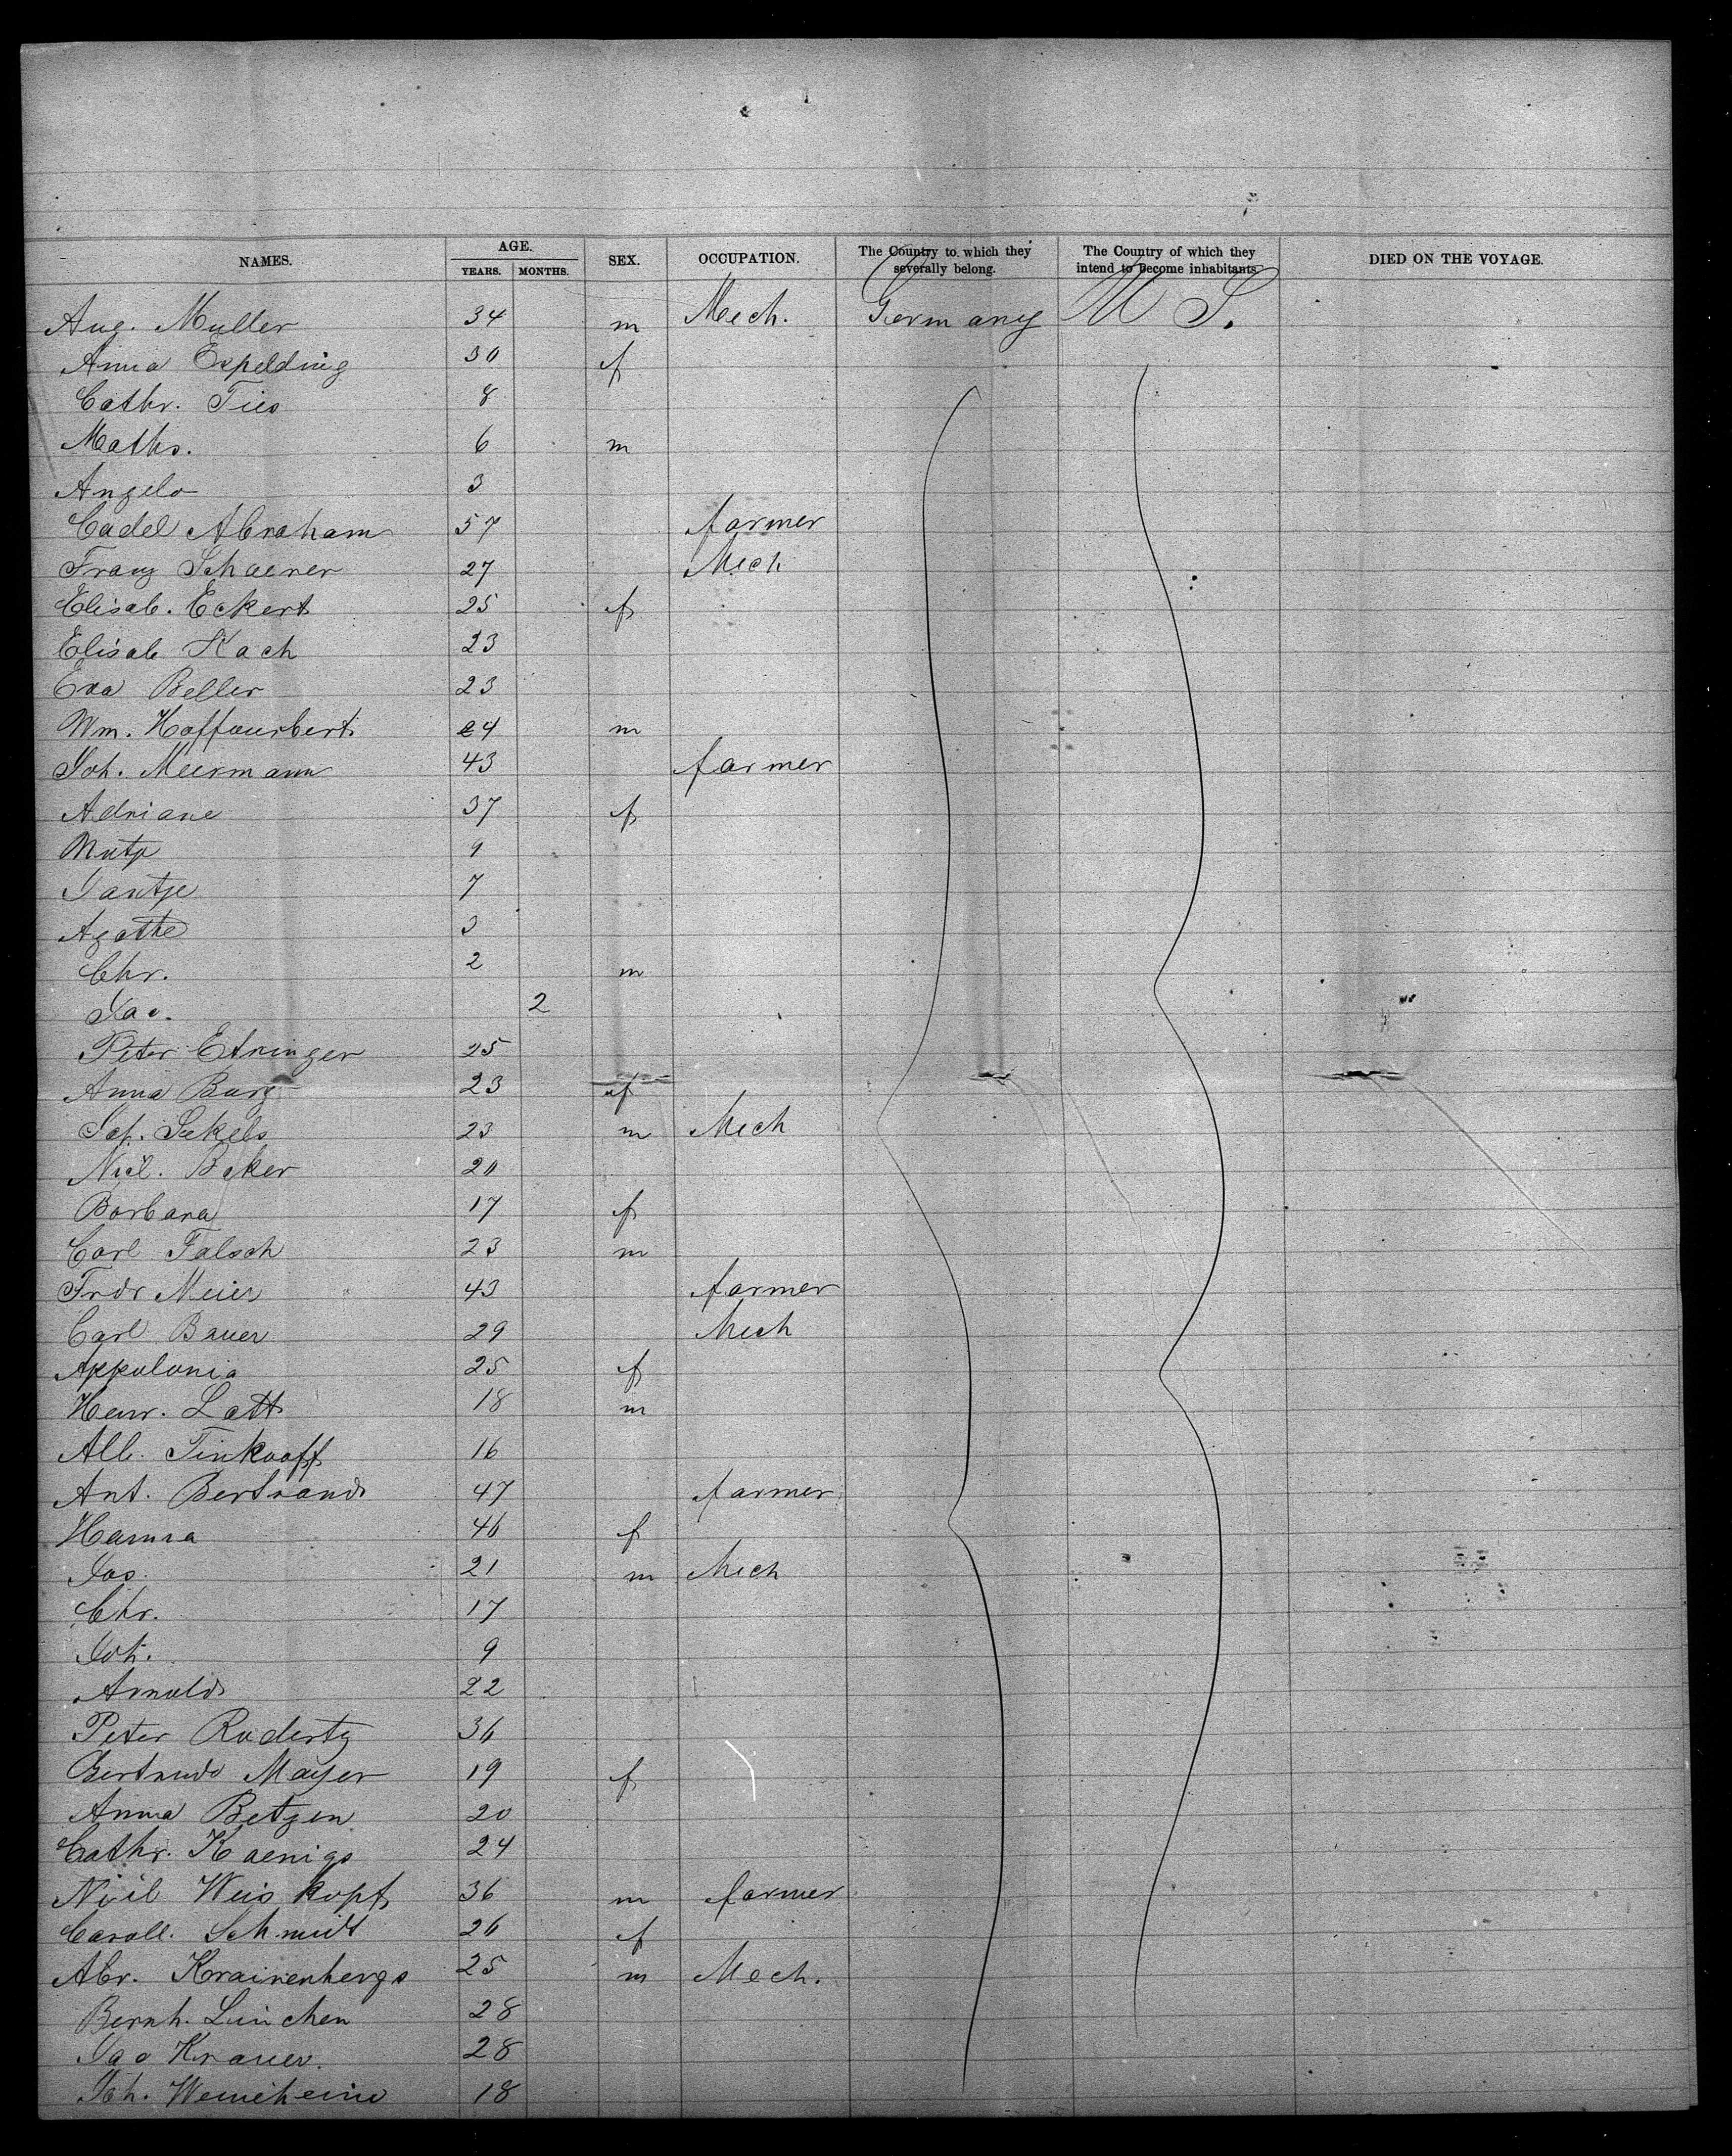 NAMES. AGE. SEX. OCCUPATION. The Country to which they severally belong. The Country of which they intend to become inhabitants DIED ON THE VOYAGE.
YEARS. MONTHS.
Aug. Muller 34 m Mech. Germany U S.
Anna Expelding 30 f
Cathr. Ties 8
Maths. 6 m
Angelo 3
Cadel Abraham 57 farmer
Franz Schaerer 27 Mech
Elisab. Eckert 25 f
Elisab Kach 23
Eva Beller 23
Wm. 24 m
Joh. Meermann 43 farmer
Adriane 37 f
9
Jantje 7
Agathe 3
Chr. 2 m
Jac. 2
Peter Etringer 25
Anna Burg 23 f
23 m Mech
Nicl. Baker 20
Barbara 17 f
Carl Falsch 23 m
Frdr Meier 43 farmer
Carl Bauer 29 Mech
Appolonia 25 f
Henr. Latt 18 m
Alb. Tinkooff 16
Ant. Bertrand 47 farmer
Hanna 46 f
Jos. 21 m Mech
Chr. 17
Joh. 9
Arnold 22
Peter Roderty 36
Gertrud Mayer 19 f
Anna Betzen 20
Cathr. Koenigs 24
Nicl Weiskopf 36 m farmer
Caroll. Schmidt 26 f
Abr. Krainenbergs 25 m Mech.
Bernh. Linchen 28
Jac Krauer. 28
Joh. 18